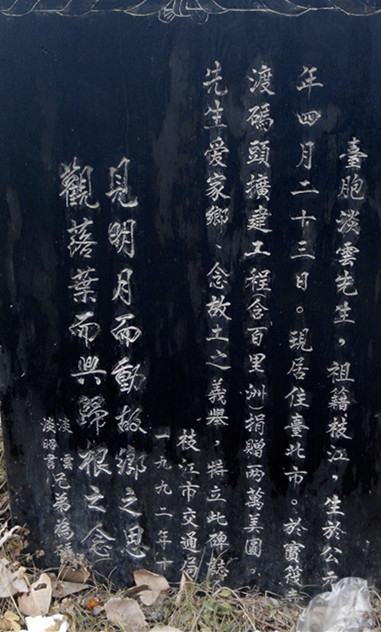 臺胞淡雲先生，祖籍枝江，生於公元
年四月二十三日。現居住臺北市。於
渡碼頭擴建工程(含百里洲)捐贈兩萬美圓。
先生爱家鄉、念故土之義舉，特立此碑誌
枝江市交通局
一九九二年十
見明月而動故鄉之思
觀落葉而興歸根之念
淡雲兄弟為
淡昭書